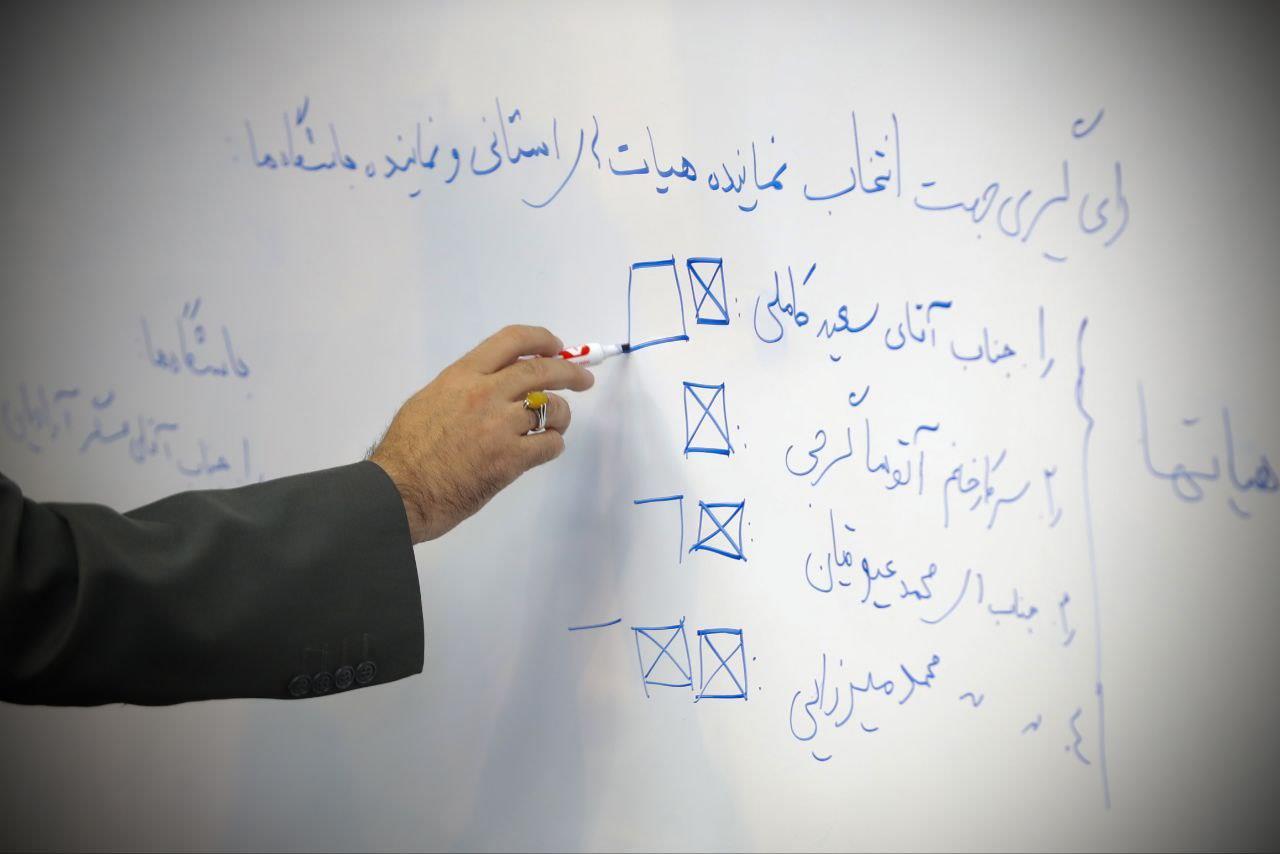 رأی گیری جهت انتخاب نماینده هیات های استانی و نماینده باشگاه ها:
هیاتها
۱. جناب آقای سعید کاملی:
۲. سرکار خانم آتوسا گرجی:
۳. جناب محمد عیوقیان:
۴. " " محمد میرزایی:
باشگاه ها:
۱. جناب آقای عسگر